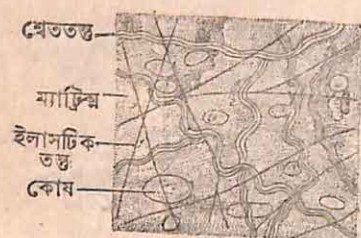 শ্বেততন্তু
ম্যাট্রিক্স
ইলাসটিক
তন্তু
কোষ